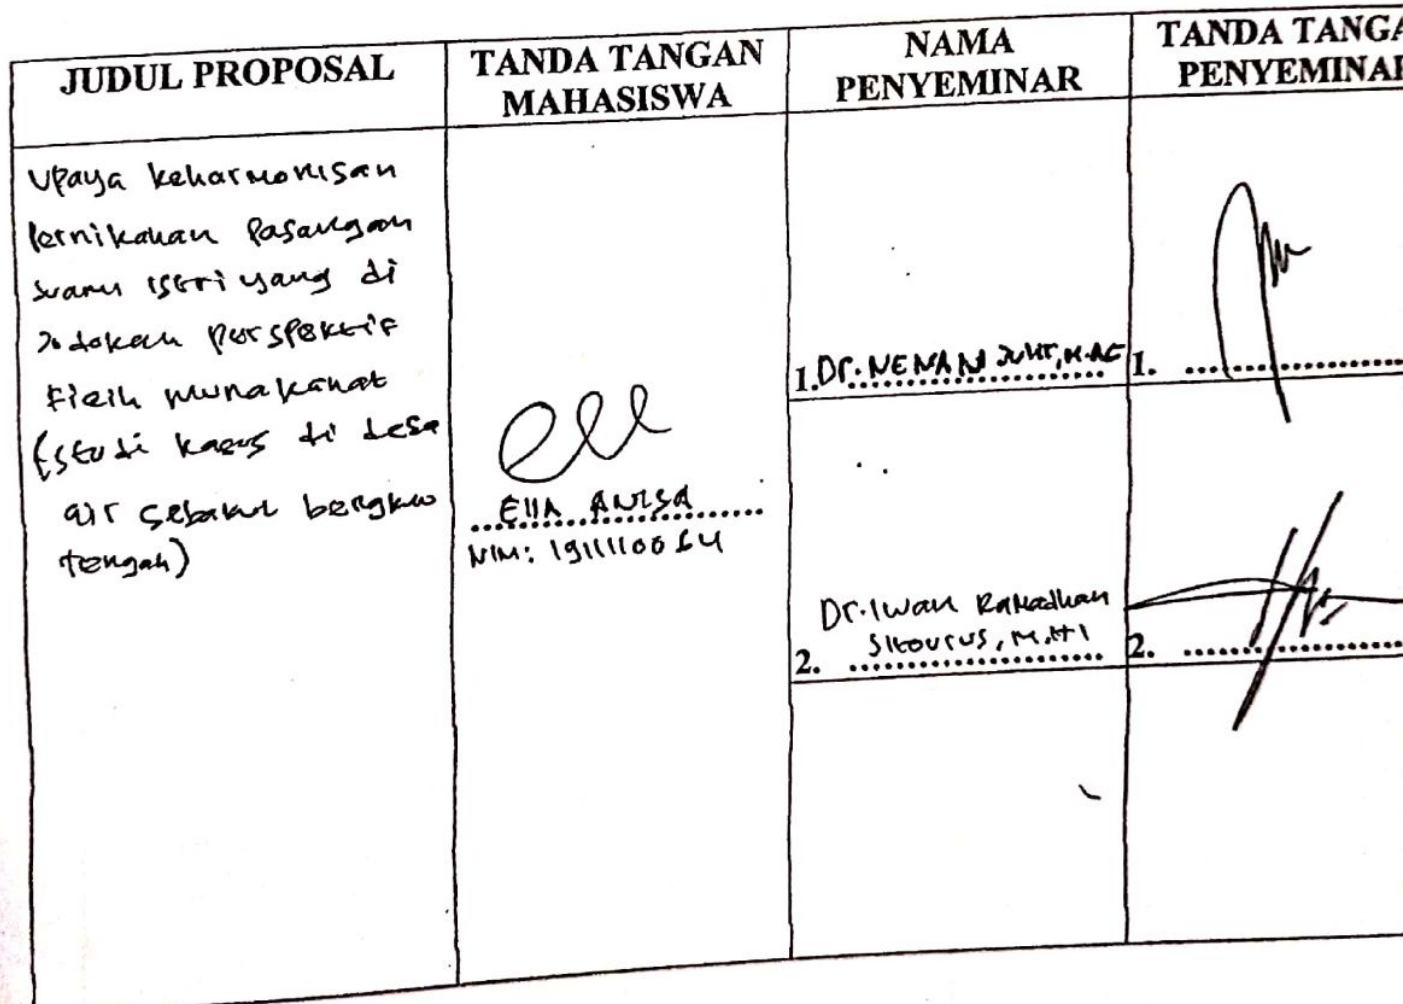 JUDUL PROPOSAL
TANDA TANGAN
MAHASISWA
NAMA
PENYEMINAR
TANDA TANGA
PENYEMINAR
Upaya keharmonisan
Pernikahan Pasangan
Suami istri yang di
Jodokan perspektif
Fiqih munakahat
(studi kasus di desa
air sebakul bengkulu
tengah)
EllA ANISA
NIM:
1.Dr. NENAN JULIR, M.AG
1.
Dr. Iwan Ramadhan
Sitorus, M.HI
2.
2.